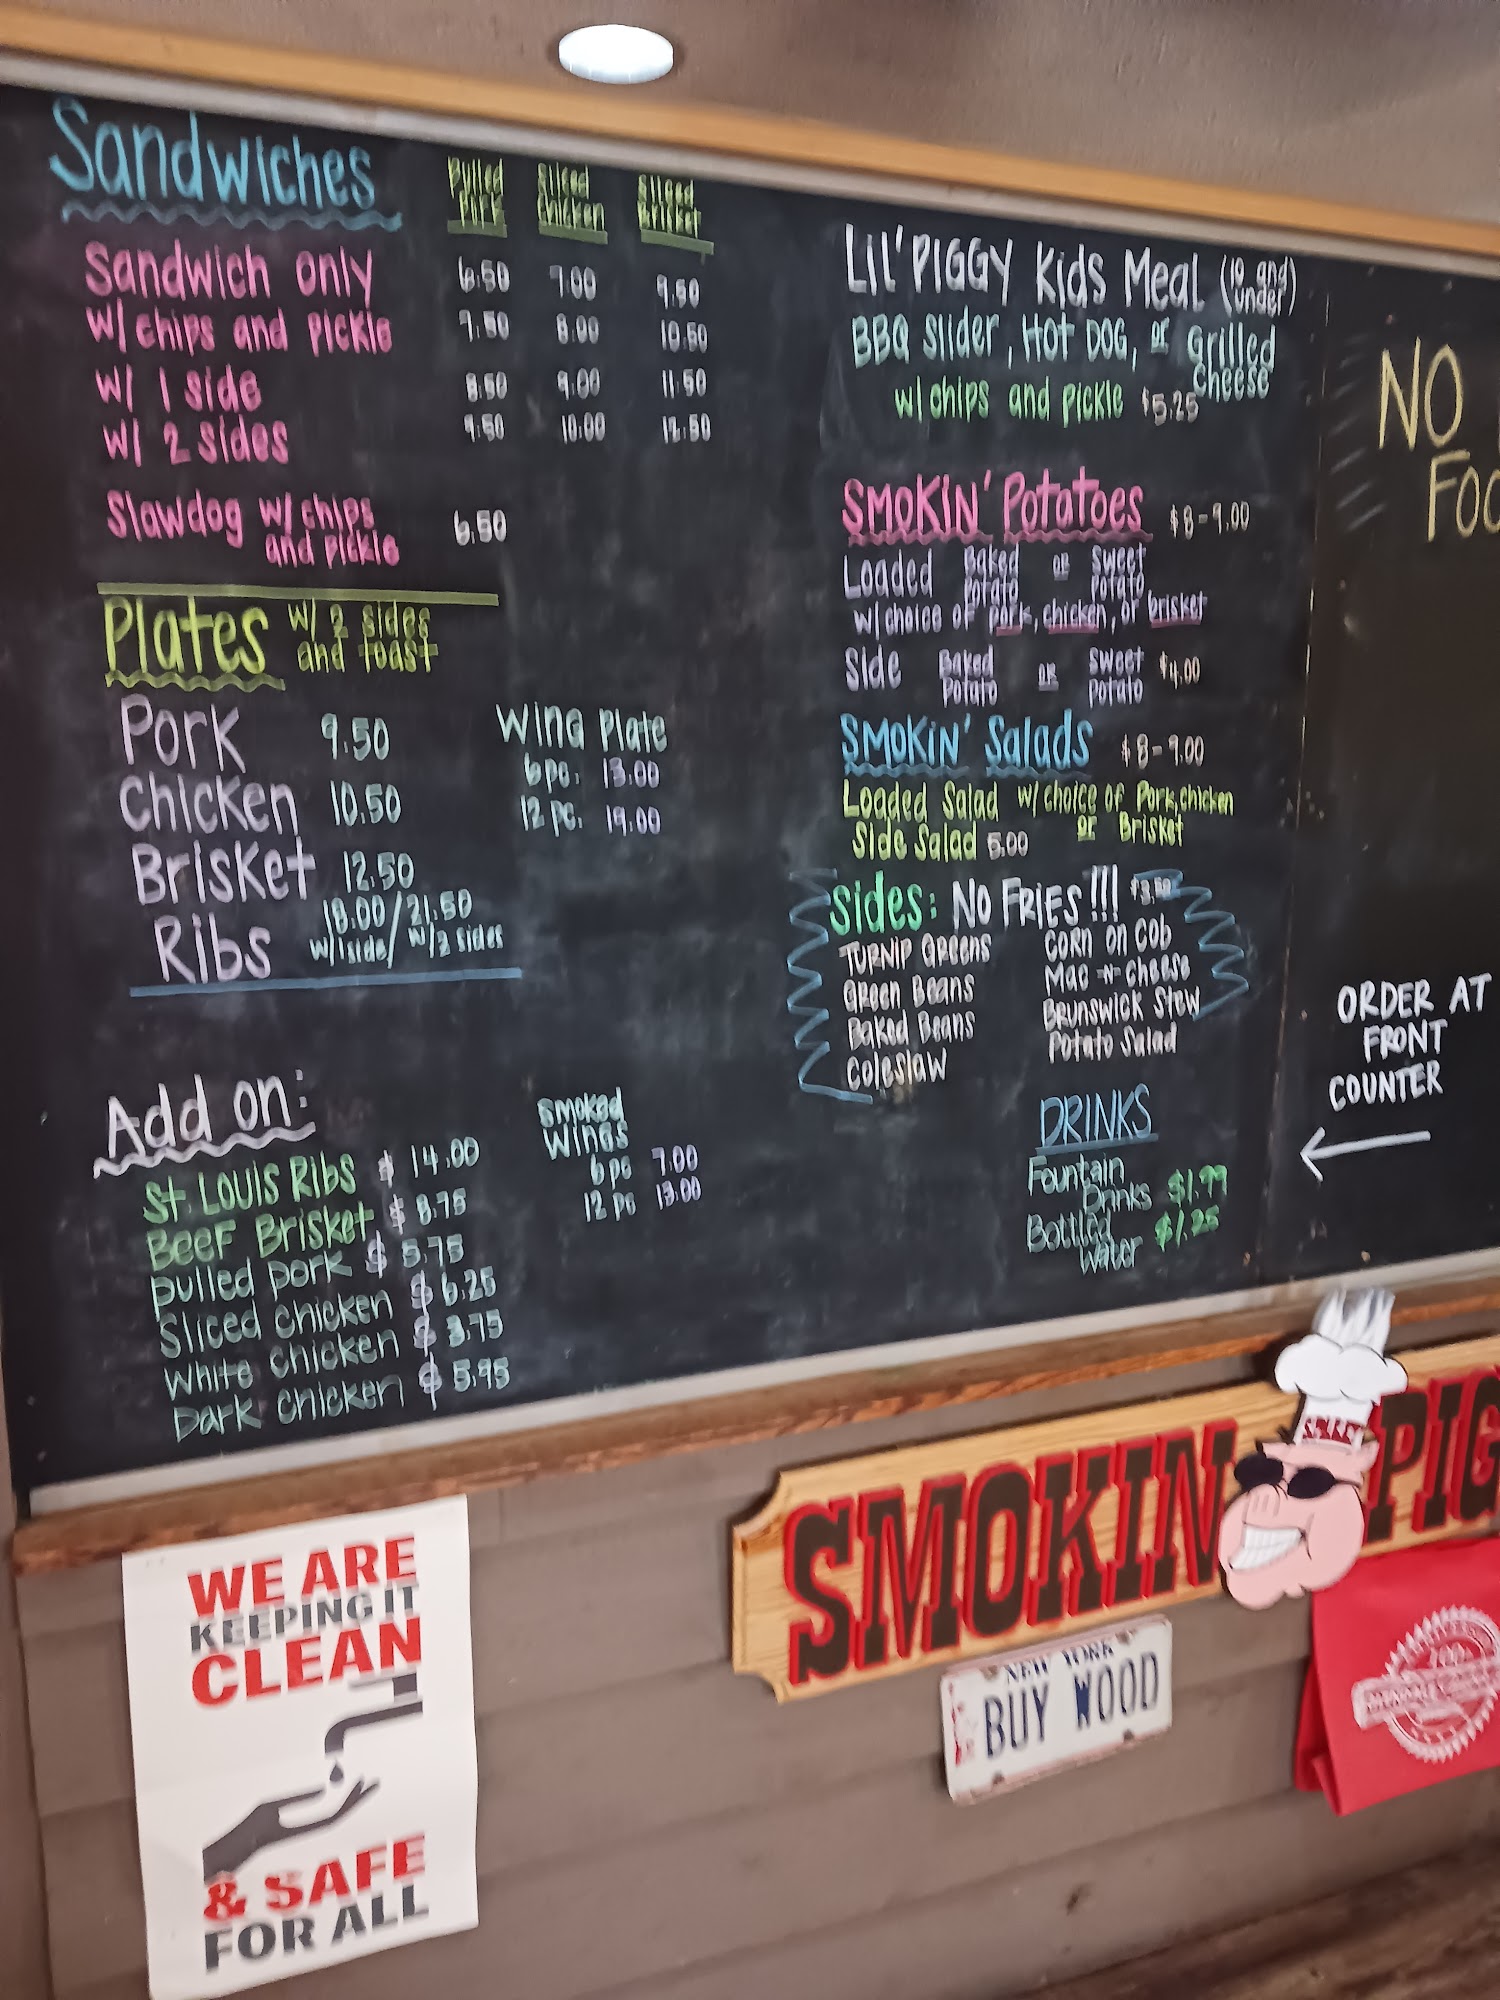 Sandwiches
Pulled Pork
Sliced Chicken
Sliced Brisket
Sandwich only 6.50 7.00 9.50
w/ chips and pickle 7.50 8.00 10.50
w/ 1 side 8.50 9.00 11.50
w/ 2 sides 9.50 10.00 12.50
Slawdog w/ chips 6.50
and pickle
Plates w/ 2 sides
and toast
Pork 9.50
Chicken 10.50
Brisket 12.50
Ribs 18.00/21.50
w/1side/ w/2 sides
Wing Plate
6 pc. 13.00
12 pc. 19.00
Add on:
St. Louis Ribs $ 14.00
Beef Brisket $ 8.75
pulled pork $ 5.75
Sliced chicken $ 6.25
White chicken $ 3.75
Dark chicken $ 5.95
Smoked
Wings
6 pc 7.00
12 pc 13.00
Lil' Piggy Kids Meal (10 and
under)
BBQ Slider, Hot Dog, or Grilled
Cheese
w/ chips and pickle $5.25
Smokin' Potatoes $8-9.00
Loaded Baked Potato or Sweet Potato
w/choice of pork, chicken, or brisket
Side Baked Potato or Sweet Potato $4.00
Smokin' Salads $8-9.00
Loaded Salad w/ choice of Pork, chicken
or Brisket
Side Salad 5.00
Sides: NO FRIES!!!
Turnip Greens
Green Beans
Baked Beans
Coleslaw
Corn on Cob
Mac-n-Cheese
Brunswick Stew
Potato Salad
DRINKS
Fountain
Drinks $1.99
Bottled
Water $1.25
NO
FOO
ORDER AT
FRONT
COUNTER
SMOKIN PIG
NEW YORK
BUY WOOD
WE ARE
KEEPING IT
CLEAN
& SAFE
FOR ALL